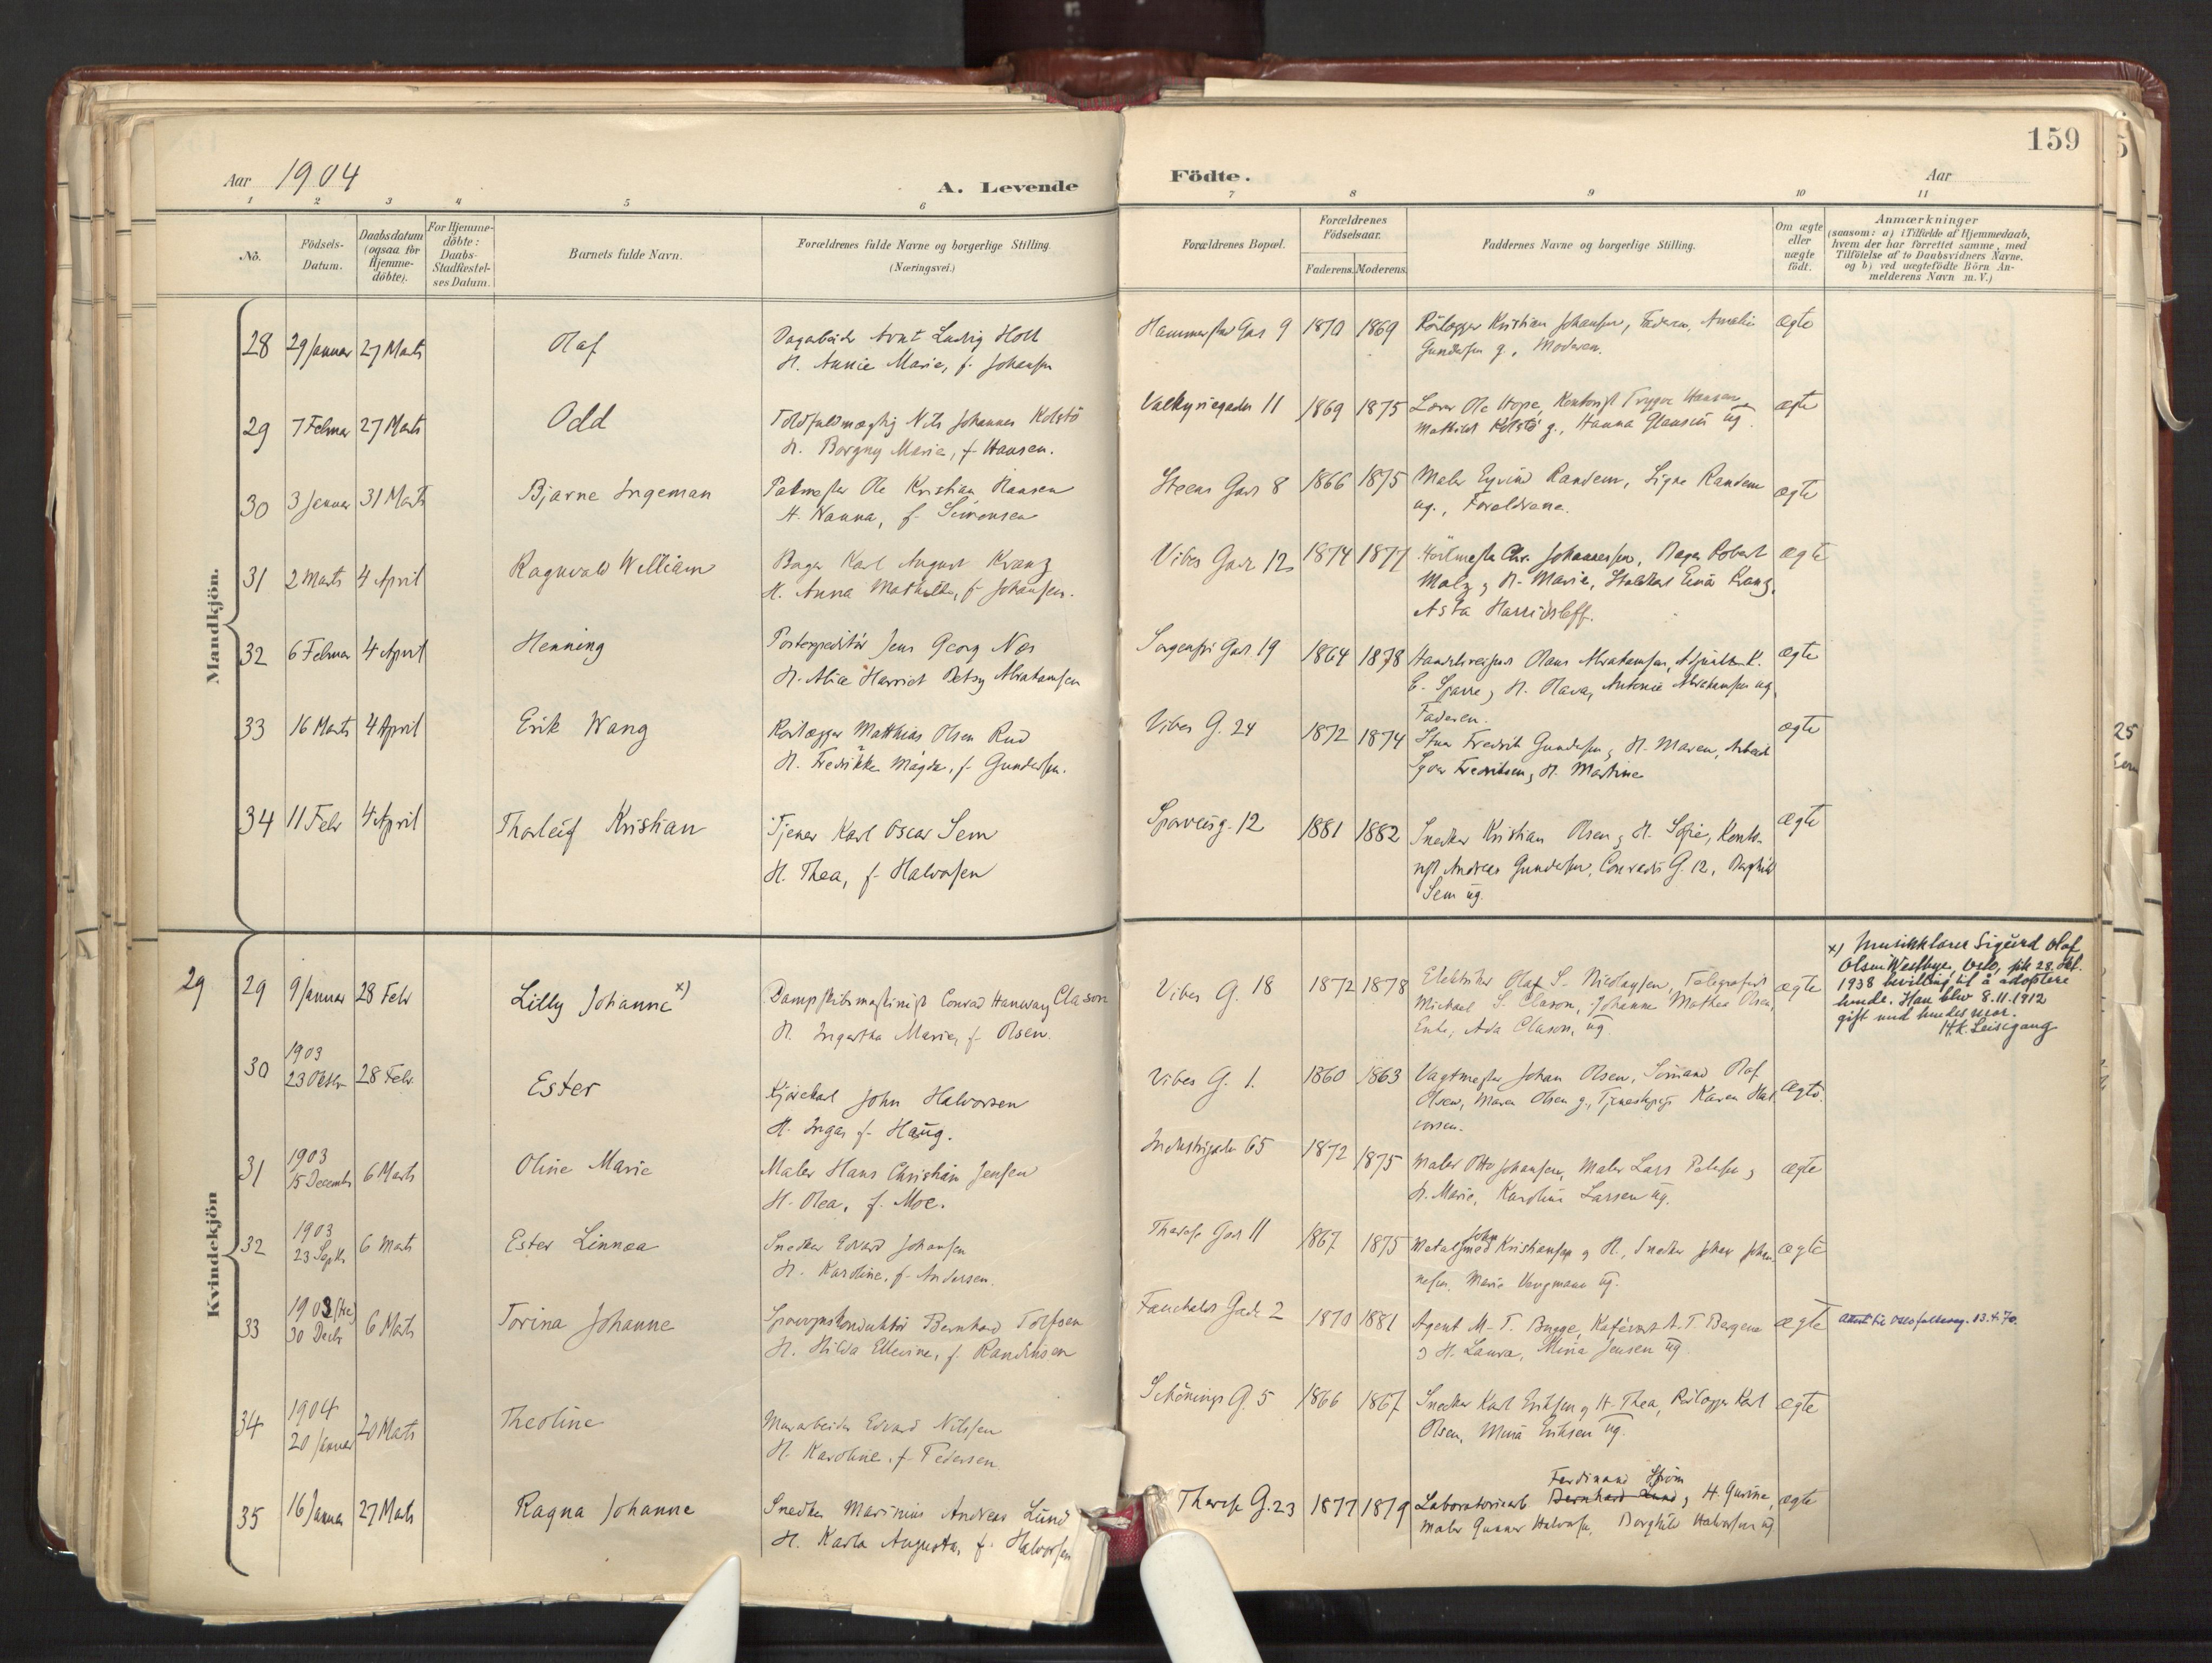 159
Aar 1904
A. Levende
Födte.
Aar
1 2 3 4 5 6 7 8 9 10 11
No.
Födsels-
Datum.
Daabsdatum
(ogsaa for
Hjemme-
döbte).
For Hjemme-
döbte:
Daabs-
Stadfæstel-
ses Datum.
Barnets fulde Navn.
Forældrenes fulde Navne og borgerlige Stilling
(Næringsvei.)
Forældrenes Bopæl.
Forældrenes
Födselsaar.
Faderens. Moderens.
Faddernes Navne og borgerlige Stilling.
Om ægte
eller
uægte
födt.
Anmærkninger
(saasom: a) i Tilfælde af Hjemmedaab,
hvem der har forrettet samme, med
Tilföielse af to Daabsvidners Navne.
og b) ved uægtefödte Börn An-
melderens Navn m.V.)
Mandkjön.
28 29 Januar 27 Marts Olaf
Arnt Ludvig Holt
H. Annie Marie, f. Johansen
Gas 9 1870 1869 Rörlægger Kristian Johansen, Faderen, Amalie
Gundersen g., Moderen.
ægte
29 7 Februar 27 Marts Odd
Toldfuldmægtig Nils Johannes Kolstö
H. Borgny Marie, f. Hansen.
Valkyriegaden 11 1869 1875 Lærer Ole Hope, Kontorist Trygve Hansen
Mathilde Kolstö g., Hanna ug.
ægte
30 3 Januar 31 Marts Bjarne Ingeman
Ole Kristian Hansen
H. Nanna, f. Simonsen
Steens Gad 8 1866 1875 Maler Eyvind Randem, Signe Randem
ug., Forældrene.
ægte
31 2 Marts 4 April Ragnvald William
Bager Karl August Kranz
H. Anna Mathilde, f. Johansen.
Vibes Gade 12 1874 1877 Chr. Johannessen, Bager Robert
Malz & H. Marie, Einar Kranz,
Asta
ægte
32 6 Februar 4 April Henning
Postexpeditör Jens Georg Næs
H. Alice Harriet Betsy Abrahamsen
Sorgenfri Gad 19 1864 1878 Handelsreisende Olaus Abrahamsen, K.
E. Sparre & H. Olava, Antonie Abrahamsen ug.
Faderen.
ægte
33 16 Marts 4 April Erik Wang
Rörlægger Matthias Olsen Rud
H. Fredrikke Magda, f. Gundersen.
Vibes G. 24 1872 1874 Fredrik Gundersen & H. Maren,
Fredriksen & H. Martine
ægte
34 11 Febr 4 April Thorleif Kristian
Tjener Karl Oscar Sem
H. Thea, f. Halvorsen
Sporveisg. 12 1881 1882 Snedker Kristian Olsen & H. Sofie, Konto-
rist Andreas Gundersen, Conradis G. 12,
Sem ug.
ægte
Kvindekjön
29
29 9 Januar 28 Febr Lilly Johanne x)
Dampskibsmaskinist Conrad Hanway Clason
H. Ingartha Marie, f. Olsen.
Vibes G. 18 1872 1878 Elektriker Olaf S. Nicolaysen, Telegrafist
Michael S. Clason, Johanne Mathea Olsen,
Enke, Ada Clason, ug.
ægte
x) Musikklærer Sigurd Olaf
Olsen Westbye, Oslo, fik 28. okt.
1938 bevilling til å adoptere
henne. Han blev 8.11.1912
gift med hendes mor.
H.k. Leisegang
30 1903
23 Oktbr 28 Febr. Ester
Kjörekarl John Halvorsen
H. Inga, f. Haug.
Vibes G. 1. 1860 1863 Vagtmester Johan Olsen, Sömand Olaf
Olsen, Maren Olsen g., Tjenestepige Karen Hal-
vorsen.
ægte.
31 1903
15 Decembr 6 Marts Oline Marie
Maler Hans Christian Jensen
H. Olea, f. Moe.
Industrigaden 65 1872 1875 Maler Otto Johansen, Maler Lars Petersen &
H. Marie, Karoline Larsen ug.
ægte
32 1903
23 Septbr 6 Marts Ester Linnea
Snedker Edvard Johansen
H. Karoline, f. Andersen.
Therese Gad 11 1867 1875 Kristiansen & H., Snedker Johan Johan-
nesen, Marie ug.
ægte
33 1903 (tre)
30 Decbr 6 Marts Torina Johanne
Sporvognskonduktör Bernhard Tolfsen
H. Hilda Ellevine, f.
Fauchalds Gade 2 1870 1881 Agent M. T. Bugge, A. T. Bergene
& H. Laura, Mina Jensen ug.
ægte
Attest til Oslo folkereg. 13.4.70.
34 1904
20 Januar 20 Marts Theoline
Murarbeider Edvard Nilssen
H. Karoline, f. Pedersen.
Schönings G. 5 1866 1867 Snedker Karl Eriksen & H. Thea, Rörlægger Karl
Olsen, Mina Eriksen ug.
ægte
35 16 Januar 27 Marts Ragna Johanne
Snedker Marinius Andreas Lund
H. Karla Augusta, f. Halvorsen
Therese G. 23 1877 1879 Ferdinand
Laboratoriearb Bernhard Lund & H. Gurine,
Maler Gunnar Halvorsen, Borghild Halvorsen ug.
ægte